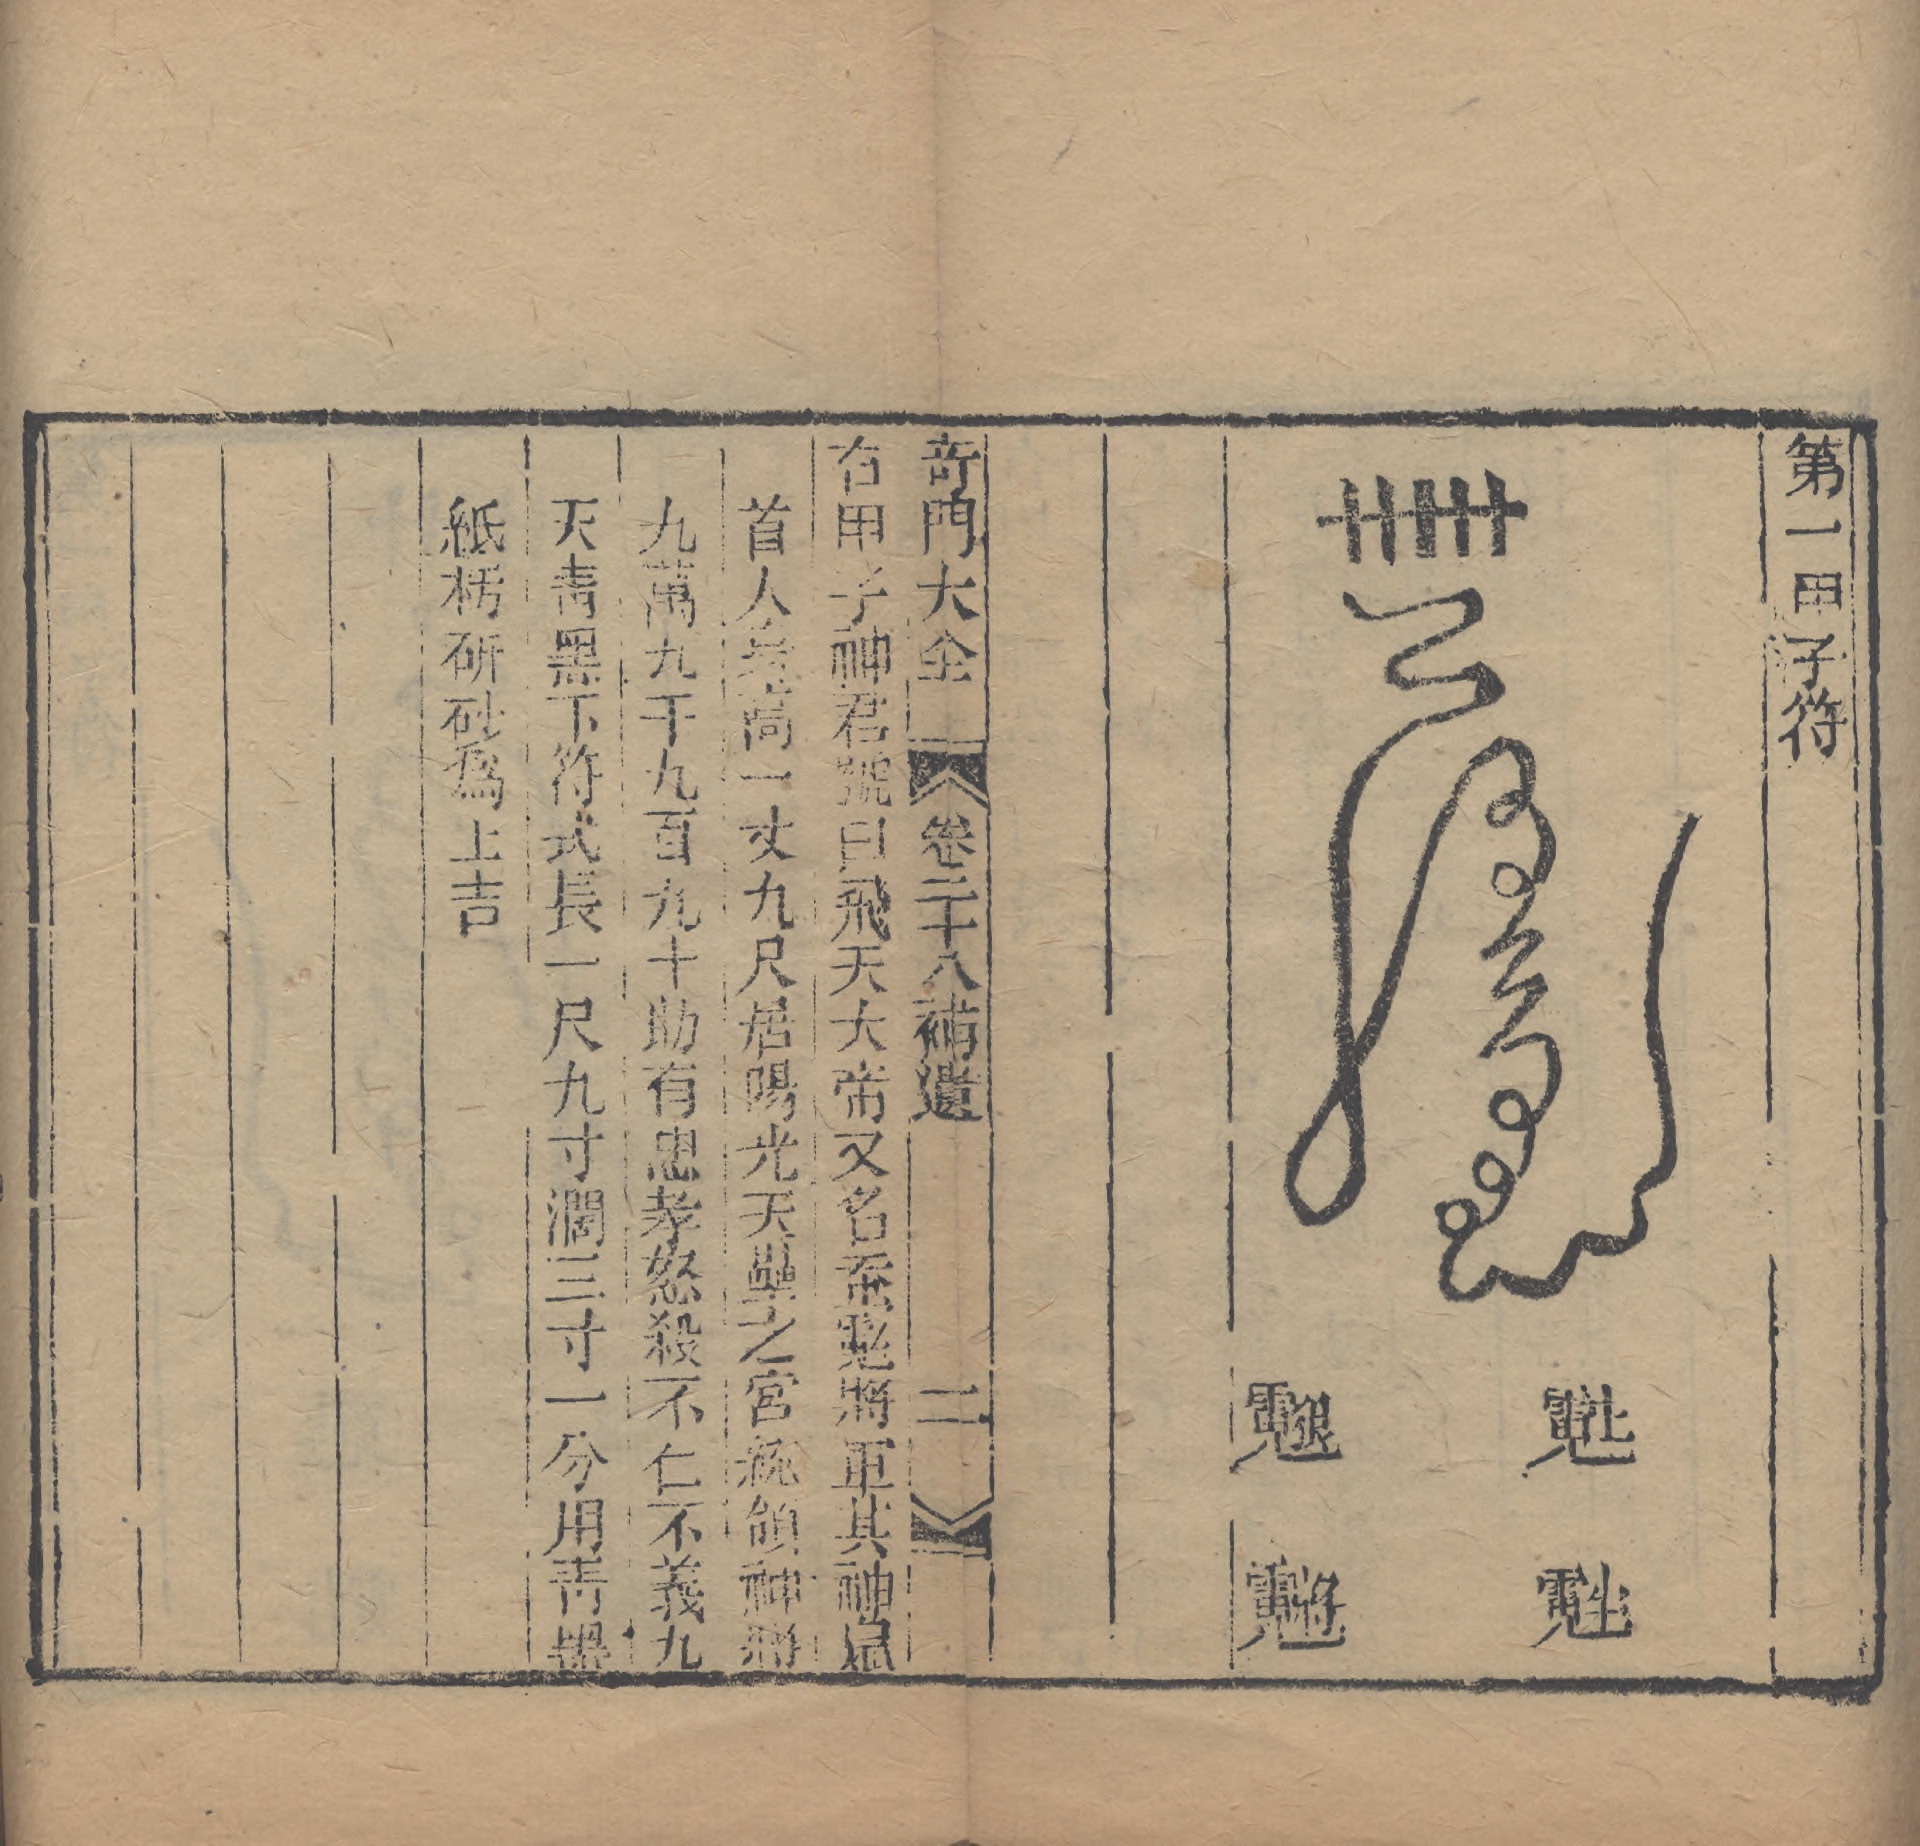 第一甲子符
奇門大全 卷二十八補遺 二
右甲子神君號曰飛天大帝又名 將軍其神
首人身高一丈九尺居陽光天 之宮統領神將
九萬九千九百九十助有忠孝怒殺不仁不義九
天青黑下符式長一尺九寸濶三寸一分用青墨
紙 研砂爲上吉